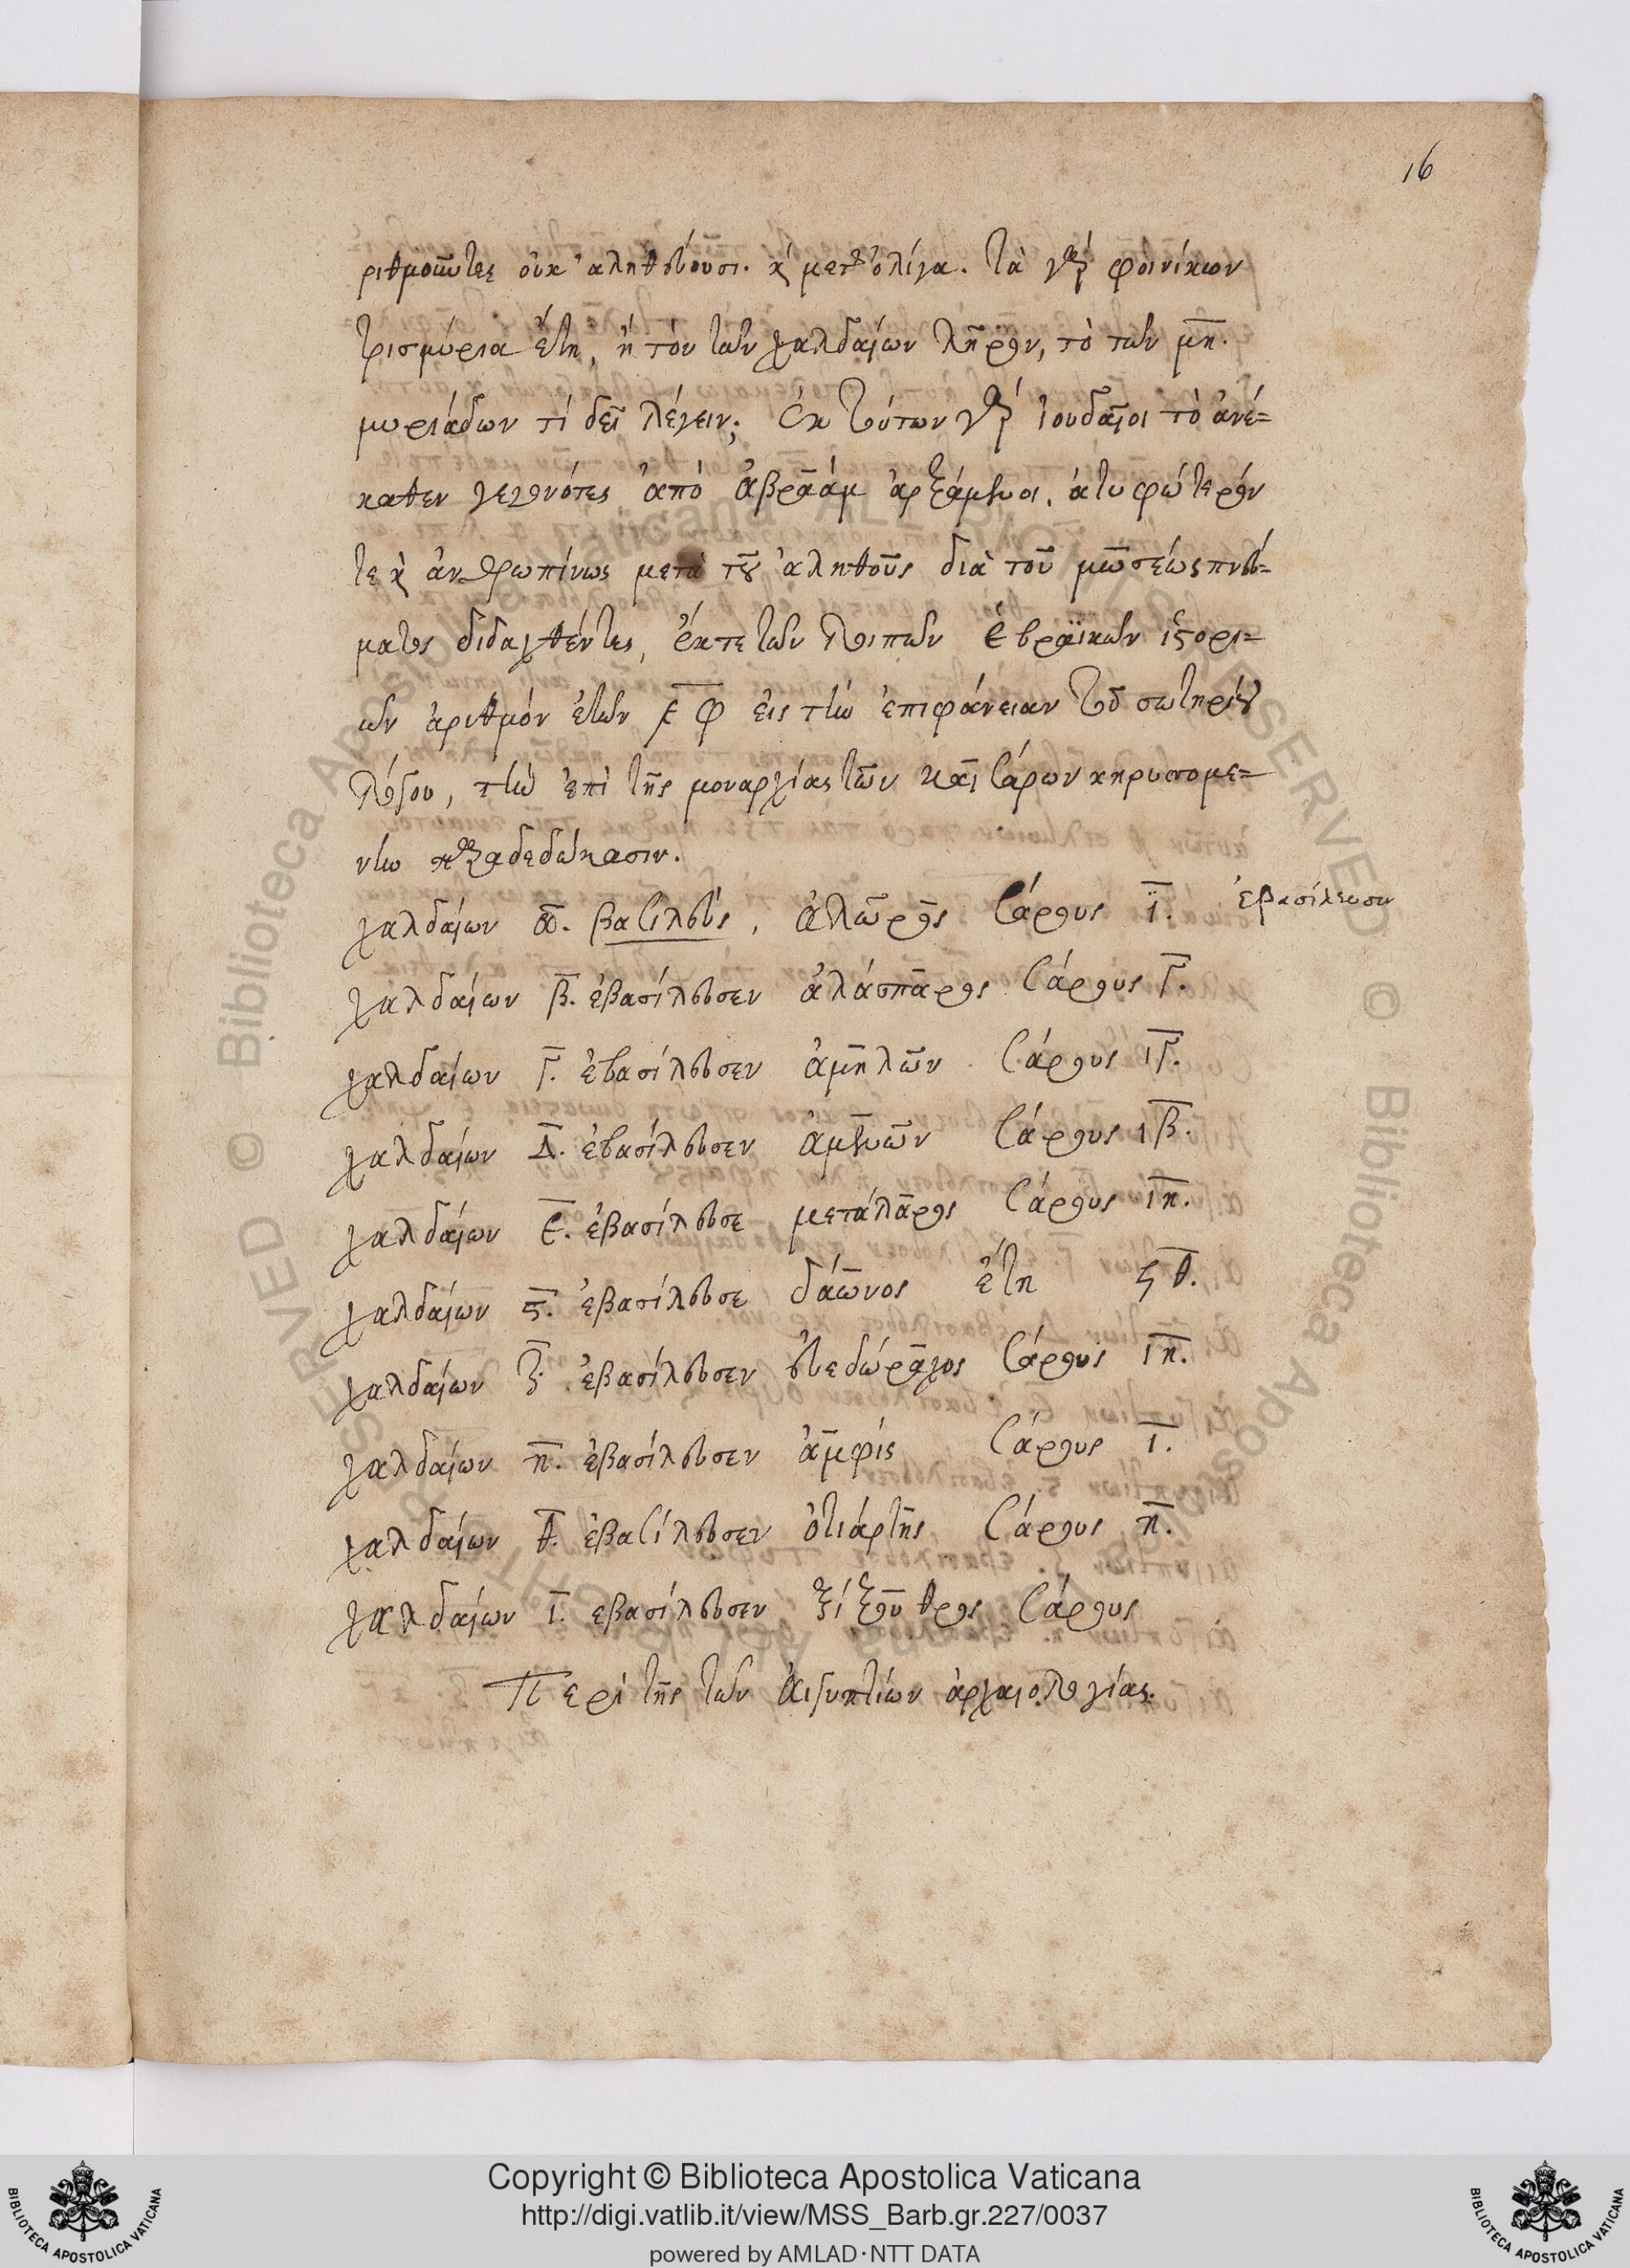 16
ριθμοῦντες οὐκ ἀληθεύουσι. καὶ μετ' ὀλίγα. Τὰ γὰρ φοινίκων
τρισμύρια ἔτη, ἢ τὸν τῶν χαλδαίων λῆρον, τὸ τῶν μ̅η̅.
μυριάδων τί δεῖ λέγειν; Ἐκ τούτων γὰρ ἰουδαῖοι τὸ ἀνέ=
καθεν γεγονότες ἀπὸ ἀβραὰμ ἀρξάμενοι, ἀτυφώτερόν
τε καὶ ἀνθρωπίνως μετὰ τοῦ ἀληθοῦς διὰ τοῦ μωσέως πνεύ=
ματος διδαχθέντες, ἔκ τε τῶν λοιπῶν ἑβραϊκῶν ἱστορι=
ῶν ἀριθμὸν ἐτῶν ͵ε̅φ̅ εἰς τὴν ἐπιφάνειαν τοῦ σωτηρίου
λόγου, τὴν ἐπὶ τῆς μοναρχίας τῶν καισάρων κηρυσσομέ=
νην παραδεδώκασιν.
χαλδαίων α̅. βασιλεύς, ἀλῶρος σάρους ι̅. ἐβασίλευσεν
χαλδαίων β̅. ἐβασίλευσεν ἀλάσπαρος σάρους γ̅.
χαλδαίων γ̅. ἐβασίλευσεν ἀμηλῶν σάρους ι̅γ̅.
χαλδαίων δ̅. ἐβασίλευσεν ἀμενῶν σάρους ι̅β̅.
χαλδαίων ε̅. ἐβασίλευσε μετάλαρος σάρους ι̅η̅.
χαλδαίων ϛ̅. ἐβασίλευσε δάωνος ἔτη
χαλδαίων ζ̅. ἐβασίλευσεν εὐεδώραχος σάρους ι̅η̅.
χαλδαίων η̅. ἐβασίλευσεν ἀμφίς σάρους ι̅.
χαλδαίων θ̅. ἐβασίλευσεν ὀτιάρτης σάρους η̅.
χαλδαίων ι̅. εβασίλευσεν ξίξουθρος σάρους
Περὶ τῆς τῶν αἰγυπτίων ἀρχαιολογίας.
Copyright © Biblioteca Apostolica Vaticana
http://digi.vatlib.it/view/MSS_Barb.gr.227/0037
powered by AMLAD·NTT DATA
BIBLIOTECA APOSTOLICA VATICANA
BIBLIOTECA APOSTOLICA VATICANA